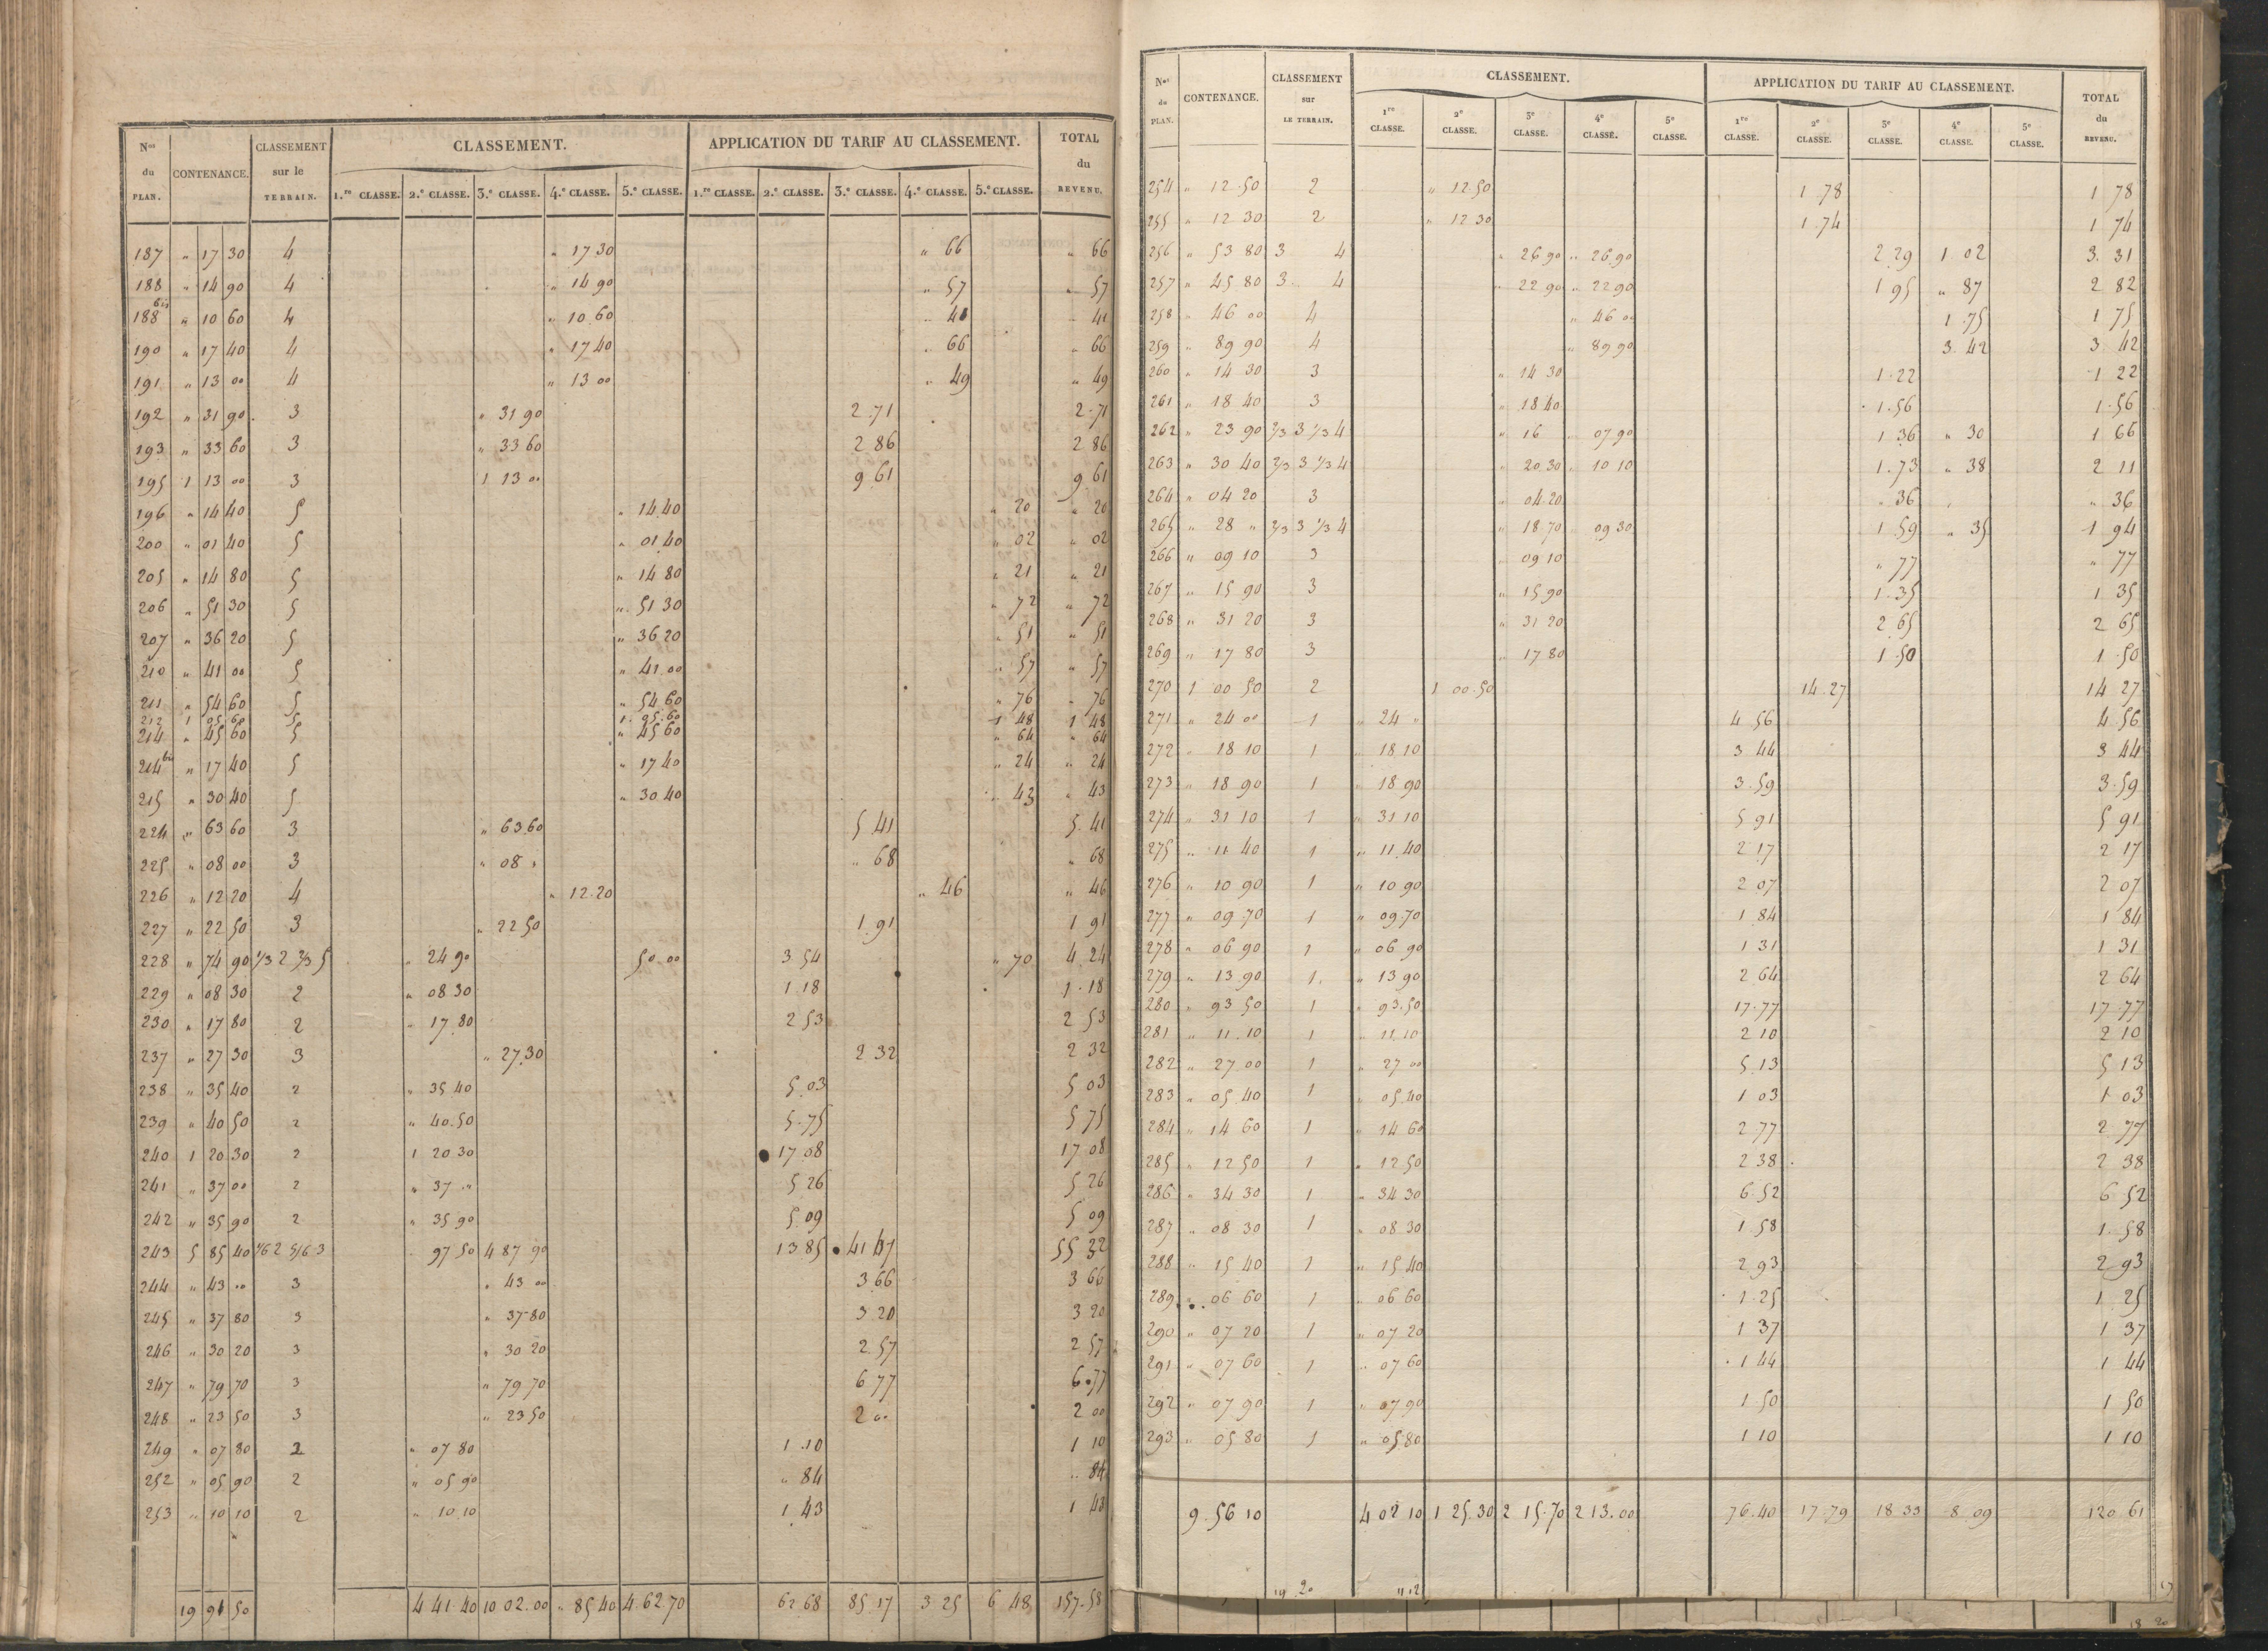 Nos du PLAN. CONTENANCE. CLASSEMENT sur le TERRAIN. CLASSEMENT. APPLICATION DU TARIF AU CLASSEMENT. TOTAL du REVENU.
1.re CLASSE. 2.e CLASSE. 3.e CLASSE. 4.e CLASSE. 5.e CLASSE. 1.re CLASSE. 2.e CLASSE. 3.e CLASSE. 4.e CLASSE. 5.e CLASSE.
187 " 17 30 4 " 17 30 " 66 " 66
188 " 14 90 4 " 14 90 " 57 " 57
188 bis " 10 60 4 " 10 60 " 41
190 " 17 40 4 " 17 40 " 66 " 66
191 " 13 00 4 " 13 00 " 49 " 49
192 " 31 90 3 " 31 90 2 71 2 71
193 " 33 60 3 " 33 60 2 86 2 86
195 1 13 00 3 1 13 00 9 61 9 61
196 " 14 40 5 " 14 40 " 20 " 20
200 " 01 40 5 " 01 40 " 02 " 02
205 " 14 80 5 " 14 80 " 21 " 21
206 " 51 30 5 " 51 30 " 72 " 72
207 " 36 20 5 " 36 20 " 51 " 51
210 " 41 00 5 " 41 00 " 57 " 57
211 " 54 60 5 " 54 60 " 76 " 76
212 1 05 60 5 1 05 60 1 48 1 48
214 " 45 60 5 " 45 60 " 64 " 64
214 bis " 17 40 5 " 17 40 " 24 " 24
215 " 30 40 5 " 30 40 " 43 " 43
224 " 63 60 3 " 63 60 5 41 5 41
225 " 08 00 3 " 08 " " 68 " 68
226 " 12 20 4 " 12 20 " 46 " 46
227 " 22 50 3 " 22 50 1 91 1 91
228 " 74 90 1/3 2 2/3 5 " 24 90 50 00 3 54 " 70 4 24
229 " 08 30 2 " 08 30 1 18 1 18
230 " 17 80 2 " 17 80 2 53 2 53
237 " 27 30 3 " 27 30 2 32 2 32
238 " 35 40 2 " 35 40 5 03 5 03
239 " 40 50 2 " 40 50 5 75 5 75
240 1 20 30 2 1 20 30 17 08 17 08
241 " 37 00 2 " 37 " 5 26 5 26
242 " 35 90 2 " 35 90 5 09 5 09
243 5 85 40 1/6 2 5/6 3 97 50 4 87 90 13 85 41 47 55 32
244 " 43 00 3 " 43 00 3 66 3 66
245 " 37 80 3 " 37 80 3 20 3 20
246 " 30 20 3 " 30 20 2 57 2 57
247 " 79 70 3 " 79 70 6 77 6 77
248 " 23 50 3 " 23 50 2 00 2 00
249 " 07 80 2 " 07 80 1 10 1 10
252 " 05 90 2 " 05 90 " 84 " 84
253 " 10 10 2 " 10 10 1 43 1 43
19 91 50 4 41 40 10 02 00 " 85 40 4 62 70 62 68 85 17 3 25 6 48 157 58
Nos du PLAN. CONTENANCE. CLASSEMENT sur LE TERRAIN. CLASSEMENT. APPLICATION DU TARIF AU CLASSEMENT. TOTAL du REVENU.
1re CLASSE. 2e CLASSE. 3e CLASSE. 4e CLASSE. 5e CLASSE. 1re CLASSE. 2e CLASSE. 3e CLASSE. 4e CLASSE. 5e CLASSE.
254 " 12 50 2 " 12 50 1 78 1 78
255 " 12 30 2 " 12 30 1 74 1 74
256 " 53 80 3 4 " 26 90 " 26 90 2 29 1 02 3 31
257 " 45 80 3 4 " 22 90 " 22 90 1 95 " 87 2 82
258 " 46 00 4 " 46 00 1 75 1 75
259 " 89 90 4 " 89 90 3 42 3 42
260 " 14 30 3 " 14 30 1 22 1 22
261 " 18 40 3 " 18 40 1 56 1 56
262 " 23 90 2/3 3 1/3 4 " 16 " 07 90 1 36 " 30 1 66
263 " 30 40 2/3 3 1/3 4 " 20 30 " 10 10 1 73 " 38 2 11
264 " 04 20 3 " 04 20 " 36 " 36
265 " 28 " 2/3 3 1/3 4 " 18 70 09 30 1 59 " 35 1 94
266 " 09 10 3 " 09 10 " 77 " 77
267 " 15 90 3 " 15 90 1 35 1 35
268 " 31 20 3 " 31 20 2 65 2 65
269 " 17 80 3 " 17 80 1 50 1 50
270 1 00 50 2 1 00 50 14 27 14 27
271 " 24 00 1 " 24 " 4 56 4 56
272 " 18 10 1 " 18 10 3 44 3 44
273 " 18 90 1 " 18 90 3 59 3 59
274 " 31 10 1 " 31 10 5 91 5 91
275 " 11 40 1 " 11 40 2 17 2 17
276 " 10 90 1 " 10 90 2 07 2 07
277 " 09 70 1 " 09 70 1 84 1 84
278 " 06 90 1 " 06 90 1 31 1 31
279 " 13 90 1 " 13 90 2 64 2 64
280 " 93 50 1 " 93 50 17 77 17 77
281 " 11 10 1 " 11 10 2 10 2 10
282 " 27 00 1 " 27 00 5 13 5 13
283 " 05 40 1 " 05 40 1 03 1 03
284 " 14 60 1 " 14 60 2 77 2 77
285 " 12 50 1 " 12 50 2 38 2 38
286 " 34 30 1 " 34 30 6 52 6 52
287 " 08 30 1 " 08 30 1 58 1 58
288 " 15 40 1 " 15 40 2 93 2 93
289 " 06 60 1 " 06 60 1 25 1 25
290 " 07 20 1 " 07 20 1 37 1 37
291 " 07 60 1 " 07 60 1 44 1 44
292 " 07 90 1 " 07 90 1 50 1 50
293 " 05 80 1 " 05 80 1 10 1 10
9 56 10 4 02 10 1 25 30 2 15 70 2 13 00 76 40 17 79 18 33 8 09 120 61